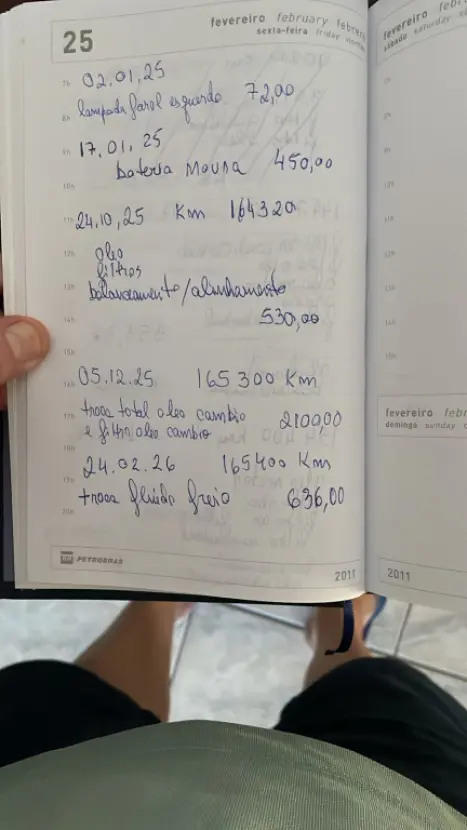 25
fevereiro february febrero
sexta-feira friday viernes
7h
02.01.25
lampada farol esquerdo 72,00
8h
9h
17.01.25
bateria Moura 450,00
10h
11h
24.10.25 Km 164320
12h
oleo
filtros
13h
balanceamento/alinhamento
14h
530,00
15h
16h
05.12.25 165300 Km
17h
troca total oleo cambio 2100,00
e filtro oleo cambio
18h
19h
24.02.26 165400 Km
troca fluido freio 636,00
20h
BR PETROBRAS
2011
fevereiro febr
sábado saturday
fevereiro febr
domingo sunday
2011